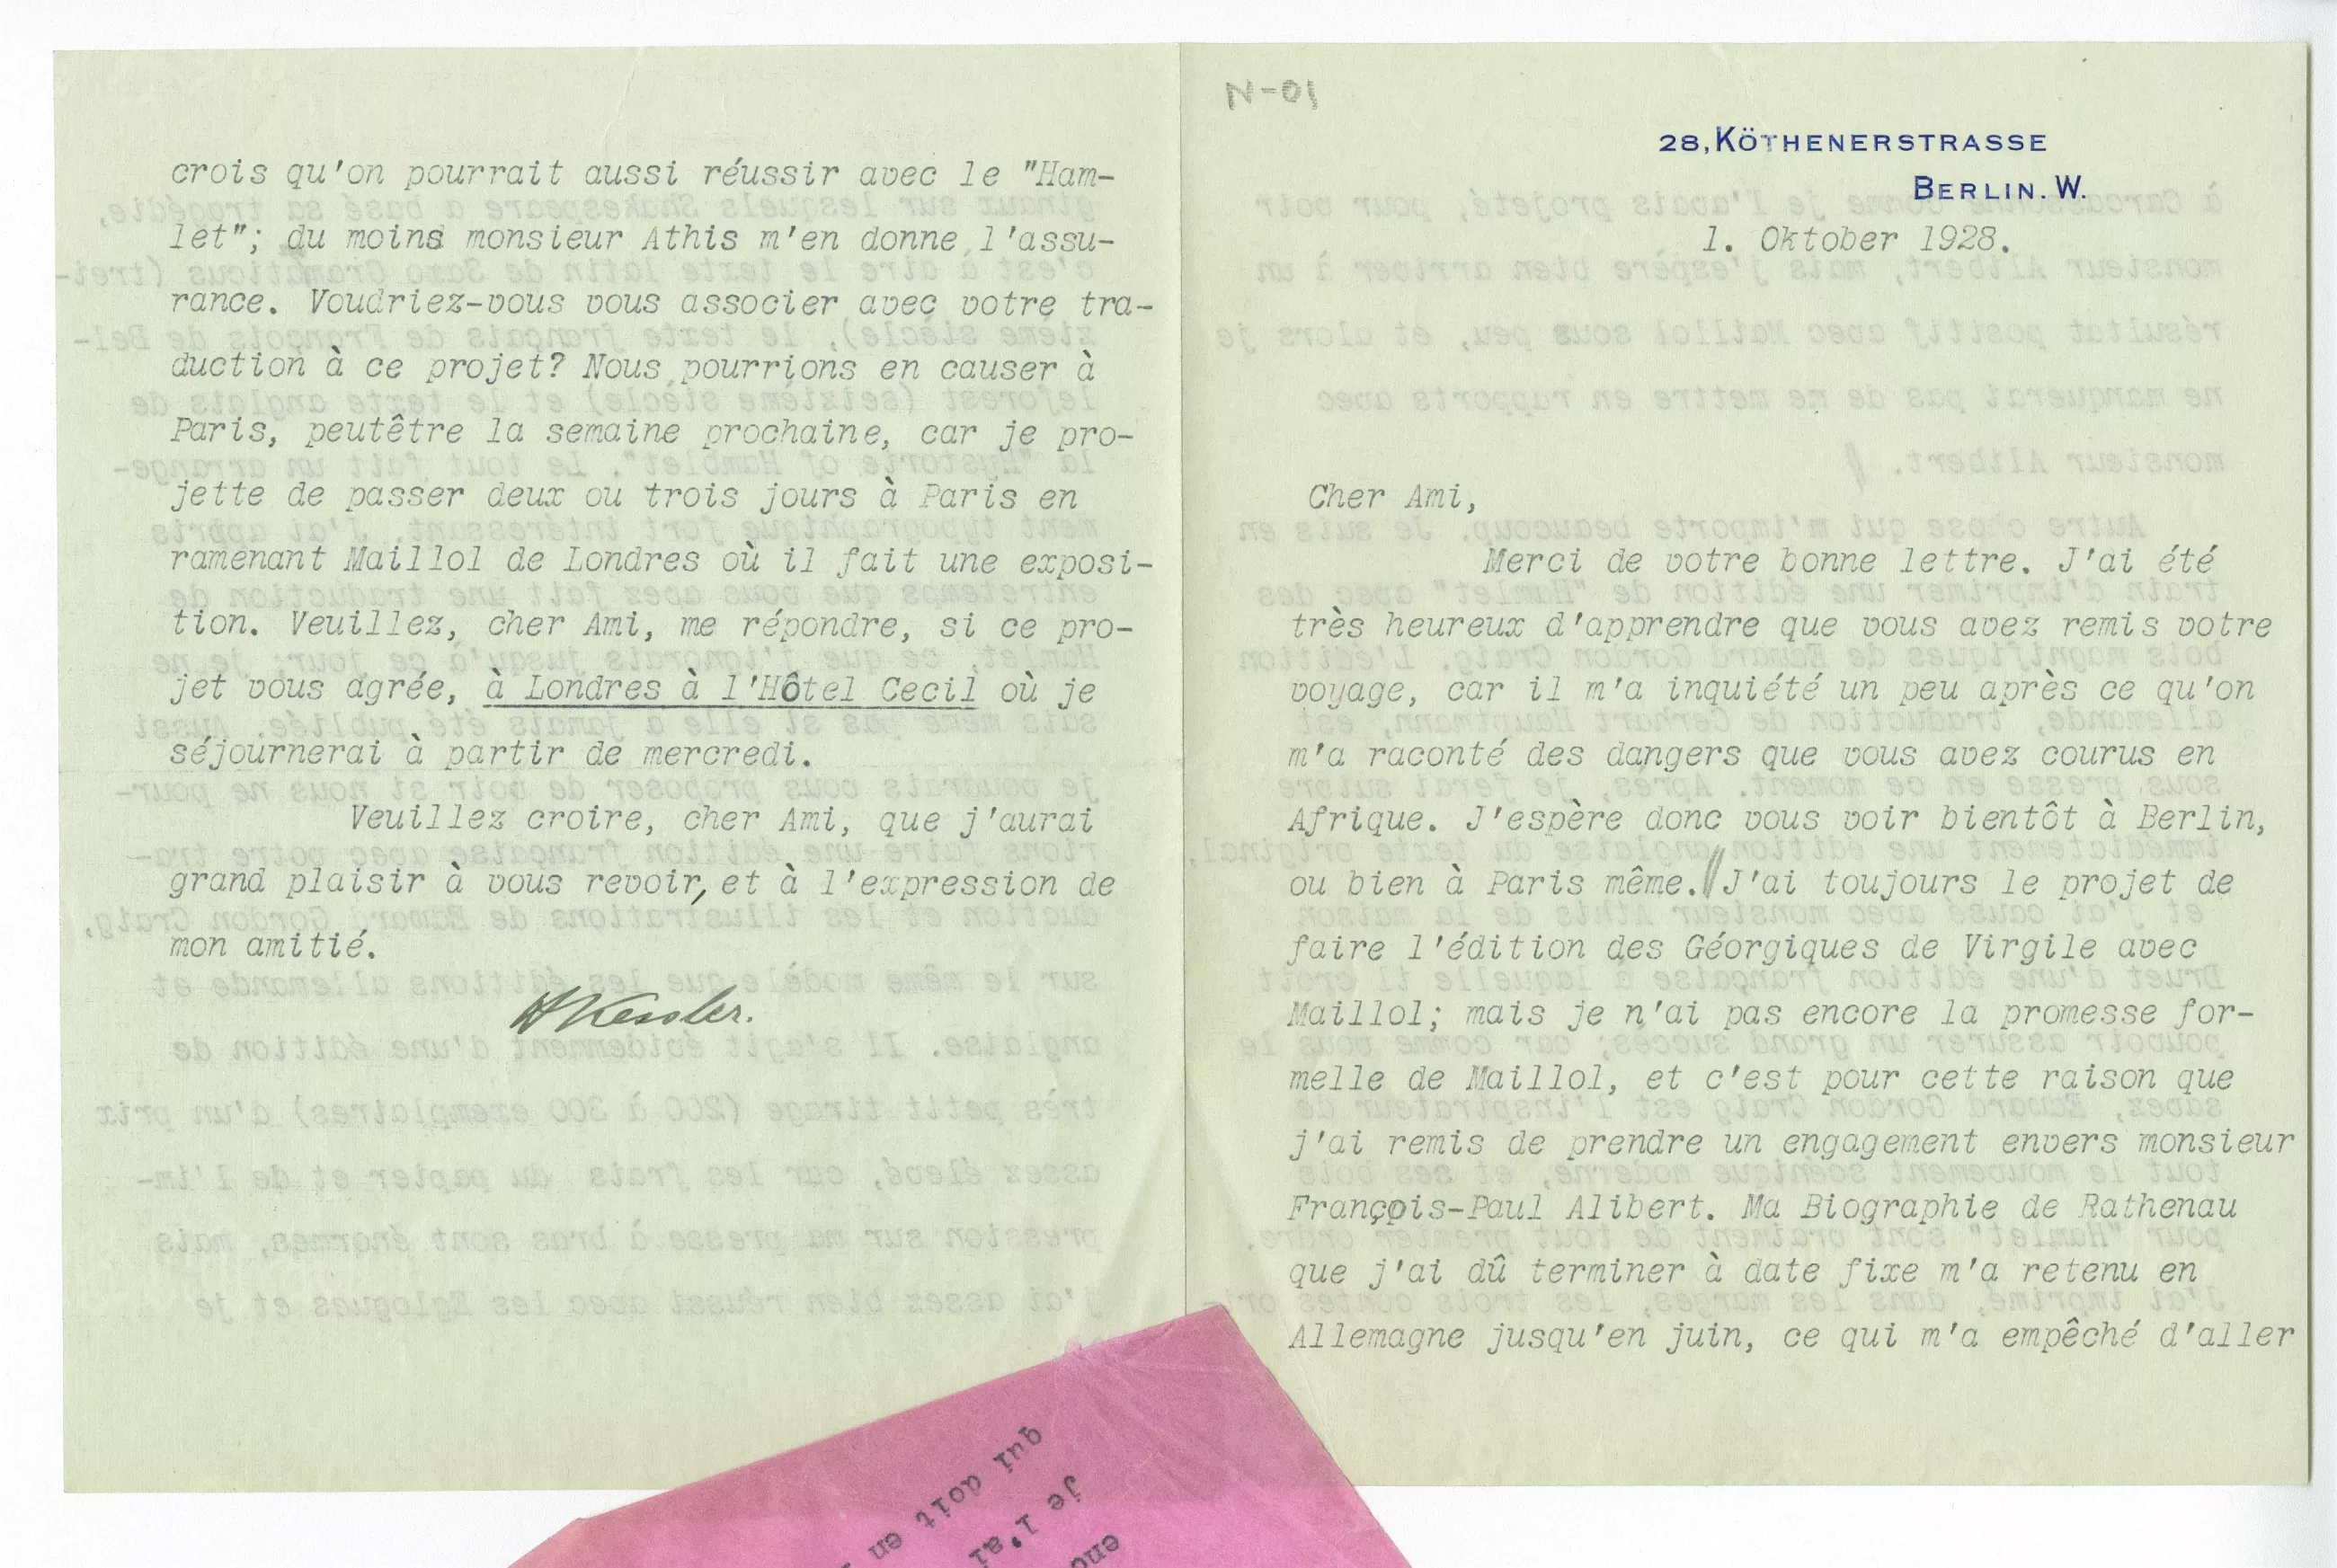 N-01
28, KÖTHENERSTRASSE
BERLIN. W.
1. Oktober 1928.
Cher Ami,
Merci de votre bonne lettre. J'ai été
très heureux d'apprendre que vous avez remis votre
voyage, car il m'a inquiété un peu après ce qu'on
m'a raconté des dangers que vous avez courus en
Afrique. J'espère donc vous voir bientôt à Berlin,
ou bien à Paris même. // J'ai toujours le projet de
faire l'édition des Géorgiques de Virgile avec
Maillol; mais je n'ai pas encore la promesse for-
melle de Maillol, et c'est pour cette raison que
j'ai remis de prendre un engagement envers monsieur
François-Paul Alibert. Ma Biographie de Rathenau
que j'ai dû terminer à date fixe m'a retenu en
Allemagne jusqu'en juin, ce qui m'a empêché d'aller
crois qu'on pourrait aussi réussir avec le "Ham-
let"; du moins monsieur Athis m'en donne l'assu-
rance. Voudriez-vous vous associer avec votre tra-
duction à ce projet? Nous pourrions en causer à
Paris, peutêtre la semaine prochaine, car je pro-
jette de passer deux ou trois jours à Paris en
ramenant Maillol de Londres où il fait une exposi-
tion. Veuillez, cher Ami, me répondre, si ce pro-
jet vous agrée, à Londres à l'Hôtel Cecil où je
séjournerai à partir de mercredi.
Veuillez croire, cher Ami, que j'aurai
grand plaisir à vous revoir, et à l'expression de
mon amitié.
HKessler.
qui doit en
je l'ai